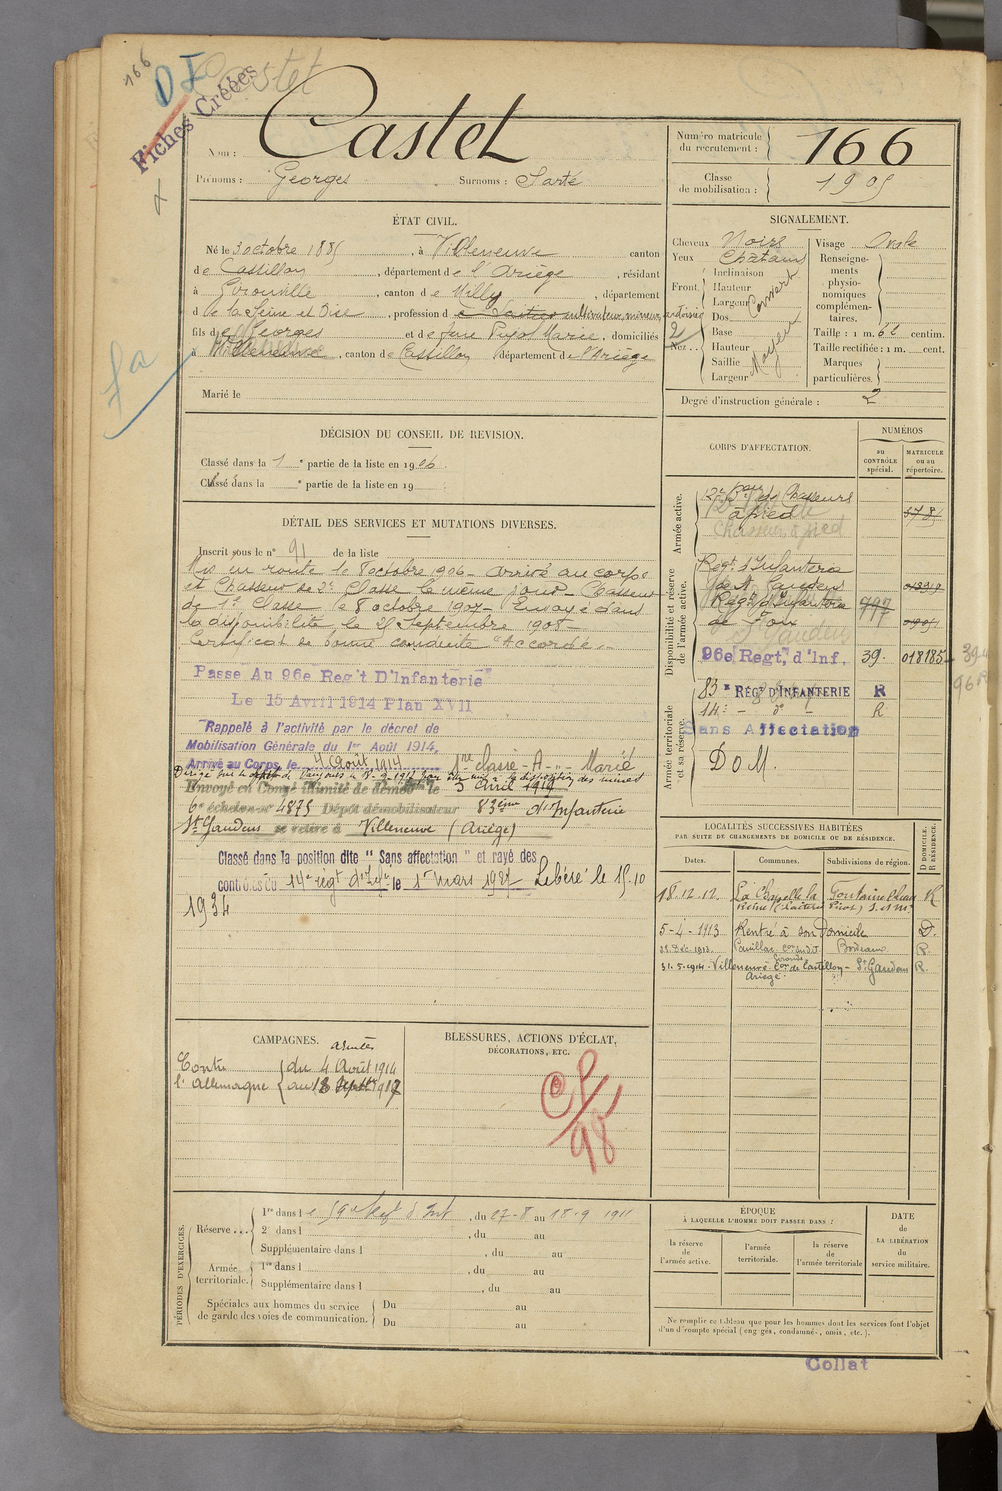 166
DI
Castet
Fiches Créées
Nom : Castet
Prénoms : Georges Surnoms : Sarté
Numéro matricule du recrutement : 166
Classe de mobilisation : 1905
ÉTAT CIVIL.
Né le 3 octobre 1885, à Villeneuve canton
de Castillon, département de l'Ariège, résidant
à Gironville, canton de Milly, département
de la Seine et Oise, profession de cultivateur, mineur, ardoisier
fils de Georges et de feue Pujol Marie, domiciliés
à Villeneuve, canton de Castillon, département de l'Ariège
Marié le
SIGNALEMENT.
Cheveux Noirs
Yeux Chatains
Front. Inclinaison
Hauteur
Largeur
Couvert
Nez. Dos
Base
Hauteur
Saillie
Largeur
Moyen
Visage Ovale
Renseignements physionomiques complémentaires.
Taille : 1 m. 62 centim.
Taille rectifiée : 1 m. cent.
Marques particulières.
Degré d'instruction générale : 2
DÉCISION DU CONSEIL DE REVISION.
Classé dans la 1e partie de la liste en 1906.
Classé dans la e partie de la liste en 19
DÉTAIL DES SERVICES ET MUTATIONS DIVERSES.
Inscrit sous le n° 91 de la liste
Mis en route le 8 octobre 1906 - arrivé au corps
et Chasseur de 2e Classe le même jour - Chasseur
de 1e Classe le 8 octobre 1907 - Envoyé dans
la disponibilité le 25 Septembre 1908 -
Certificat de bonne conduite "Accordé" -
Passe Au 96e Reg't D'Infanterie
Le 15 Avril 1914 Plan XVII
Rappelé à l'activité par le décret de
Mobilisation Générale du 1er Août 1914.
Arrivé au Corps, le 4 Août 1914 1re classe - A - Marié
Dirigé sur le dépôt de le 18-9-1917 pour être mis à la disposition des mines
Envoyé en Congé illimité de démob le 3 Avril 1919
6e échelon n° 4875 Dépôt démobilisateur 83ème d'Infanterie
St Gaudens se retire à Villeneuve (Ariège)
Classé dans la position dite " Sans affectation " et rayé des
contrôles du 14e régt d'Infie le 1er mars 1927 Libéré le 15-10
1934
CORPS D'AFFECTATION.
NUMÉROS
au CONTRÔLE spécial.
MATRICULE ou au répertoire.
Armée active.
12e Bon de Chasseurs
à pied
5785
Disponibilité et réserve de l'armée active.
Regt d'Infanterie
de St Gaudens
Regt d'Infanterie 797
de Foix
96e Regt, d'Inf. 39. 018185
Armée territoriale et sa réserve.
83e RÉGt D'INFANTERIE R
14e - do - R
Sans Affectation
DoM.
LOCALITÉS SUCCESSIVES HABITÉES
PAR SUITE DE CHANGEMENTS DE DOMICILE OU DE RÉSIDENCE.
Dates. Communes. Subdivisions de région. D DOMICILE. R RÉSIDENCE.
18.12.12. La Chapelle la Fontainebleau R
Reine S. et M.
5-4-1913 Rentré à son Domicile D.
Pauillac Bordeaux R.
Gironde
31.5.1914. Villeneuve Con de Castillon - St Gaudens R.
Ariège.
CAMPAGNES.
Contre
l'Allemagne
armées
du 4 Août 1914
au 18 Septbre 1917
BLESSURES, ACTIONS D'ÉCLAT,
DÉCORATIONS, ETC.
98
PÉRIODES D'EXERCICES.
Réserve ... 1re dans le 59e Regt d'Inf, du 27-8 au 18-9 1911
2e dans l , du au
Supplémentaire dans l , du au
Armée territoriale. 1re dans l , du au
Supplémentaire dans l , du au
Spéciales aux hommes du service de garde des voies de communication. Du au
Du au
ÉPOQUE
À LAQUELLE L'HOMME DOIT PASSER DANS :
la réserve de l'armée active.
l'armée territoriale.
la réserve de l'armée territoriale
DATE de LA LIBÉRATION du service militaire.
Ne remplir ce tableau que pour les hommes dont les services font l'objet
d'un décompte spécial (engagés, condamnés, omis, etc.).
Collat